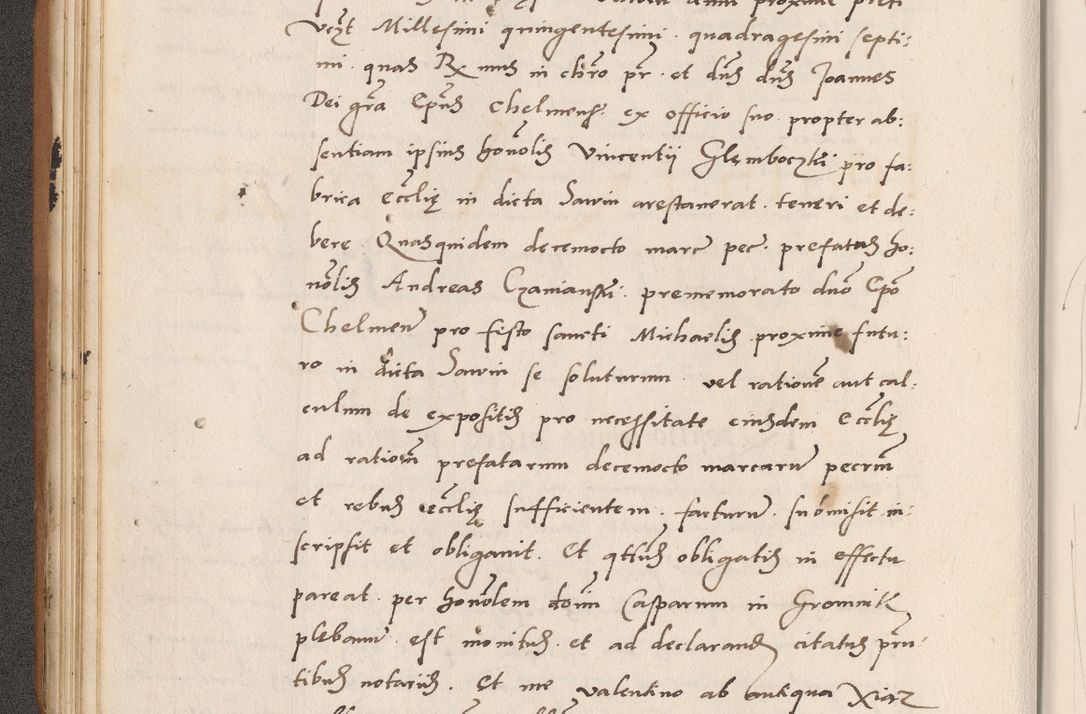 anni proxime preti
Vcꝫt Millesimi quingentesimi quadragesimi septi:
mi. quas Rx mus in chro pr. et dns dns Joannes
Dei gra Epus Chelmens. ex officio suo propter ab:
sentiam ipsius honolis Vincentii Glemboczki pro fa:
brica Ecclię in dicta Sawin arestauerat. teneri et de:
bere. Quasquidem decemocto marc pec. prefatus ho:
nolis Andreas Czanianski. prememorato dno Epo
Chelmen pro festo sancti Michaelis proxime futu:
ro in dicta Sawin se soluturum. vel rationē aut cal:
culum de expositis pro necessitate eiusdem Ecclię
ad rationem prefatarum decemocto marcarum pecrum
et rebus ecclię sufficientem. facturum. submisit in:
scripsit et obligauit. Et qtus obligatis in effectu
pareat. per honolem domin Casparum in Gromnik
plebanum est monitus et ad declarand citatus prn:
tibus notariis. Et me Valentino ab antiqua Xiaz